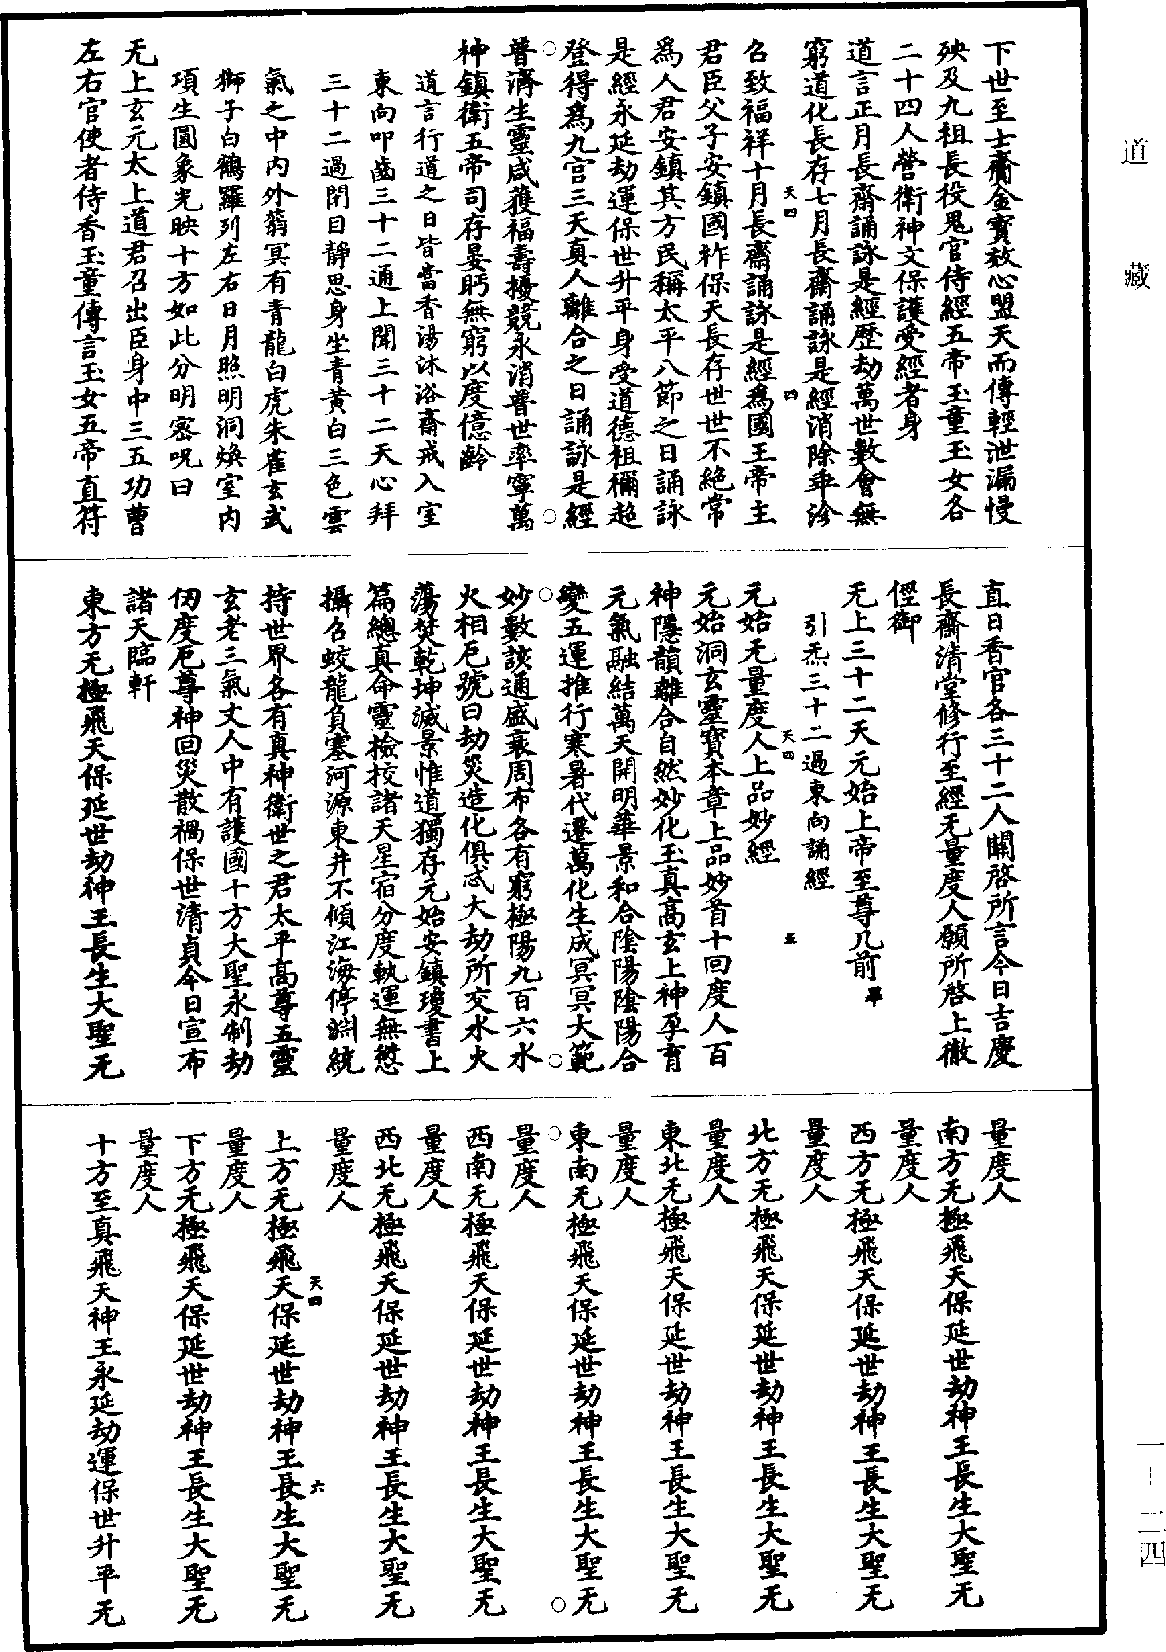 下世至士齋金寶效心盟天而傳輕泄漏慢
殃及九祖長役鬼官侍經五帝玉童玉女各
二十四人營衛神文保護受經者身
道言正月長齋誦詠是經歷劫萬世數會無
窮道化長存七月長齋誦詠是經消除乖沴
召致福祥十月長齋誦詠是經爲國王帝主
君臣父子安鎮國祚保天長存世世不絕常
爲人君安鎮其方民稱太平八節之日誦詠
是經永延劫運保世升平身受道德祖禰超
登得爲九宫三天真人離合之日誦詠是經
普濟生靈咸獲福壽擾競永消普世率寧萬
神鎮衛五帝司存晏眄無窮以度億齡
道言行道之日皆當香湯沐浴齋戒入室
東向叩齒三十二通上聞三十二天心拜
三十二過閉目靜思身坐青黃白三色雲
氣之中内外蓊冥有青龍白虎朱雀玄武
獅子白鶴羅列左右日月照明洞煥室内
項生圓象光映十方如此分明密呪曰
无上玄元太上道君召出臣身中三五功曹
左右官使者侍香玉童傳言玉女五帝直符
直日香官各三十二人關啓所言今日吉慶
長齋清堂修行至經无量度人願所啓上徹
徑御
无上三十二天元始上帝至尊几前畢
引炁三十二過東向誦經
天四 五
元始无量度人上品妙經
元始洞玄靈寶本章上品妙首十回度人百
神隱韻離合自然妙化玉真高玄上神孕育
元氣融結萬天開明華景和合陰陽陰陽合
變五運推行寒暑代遷萬化生成冥冥大範
妙數該通盛衰周布各有窮極陽九百六水
火相厄號曰劫災造化俱忒大劫所交水火
蕩焚乾坤滅景惟道獨存元始安鎮瓊書上
篇總真命靈檢校諸天星宿分度軌運無愆
攝召蛟龍負塞河源東井不傾江海停淵統
持世界各有真神衛世之君太平高尊五靈
玄老三氣丈人中有護國十方大聖永制劫
仞度厄尊神回災散禍保世清貞今日宣布
諸天臨軒
東方无極飛天保延世劫神王長生大聖无
量度人
南方无極飛天保延世劫神王長生大聖无
量度人
西方无極飛天保延世劫神王長生大聖无
量度人
北方无極飛天保延世劫神王長生大聖无
量度人
東北无極飛天保延世劫神王長生大聖无
量度人
東南无極飛天保延世劫神王長生大聖无
量度人
西南无極飛天保延世劫神王長生大聖无
量度人
西北无極飛天保延世劫神王長生大聖无
量度人
天四 六
上方无極飛天保延世劫神王長生大聖无
量度人
下方无極飛天保延世劫神王長生大聖无
量度人
十方至真飛天神王永延劫運保世升平无
天四 四
道藏
一-二四